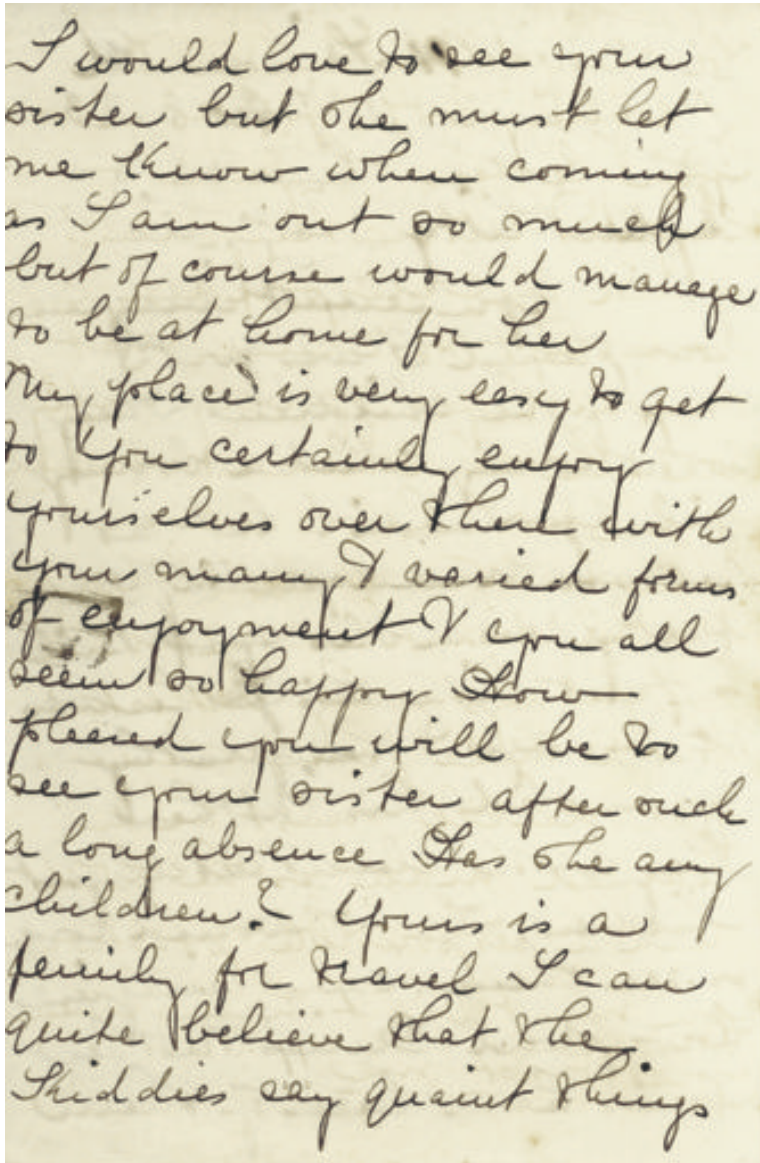 I would love to see your
sister but she must let
me know when coming
as I am out so much
but of course would manage
to be at home for her
My place is very easy to get
to You certainly enjoy
yourselves over there with
your many & varied forms
of enjoyment & you all
seem so happy How
pleased you will be to
see your sister after such
a long absence Has she any
children? Yours is a
family for travel I can
quite believe that the
Kiddies say quaint things